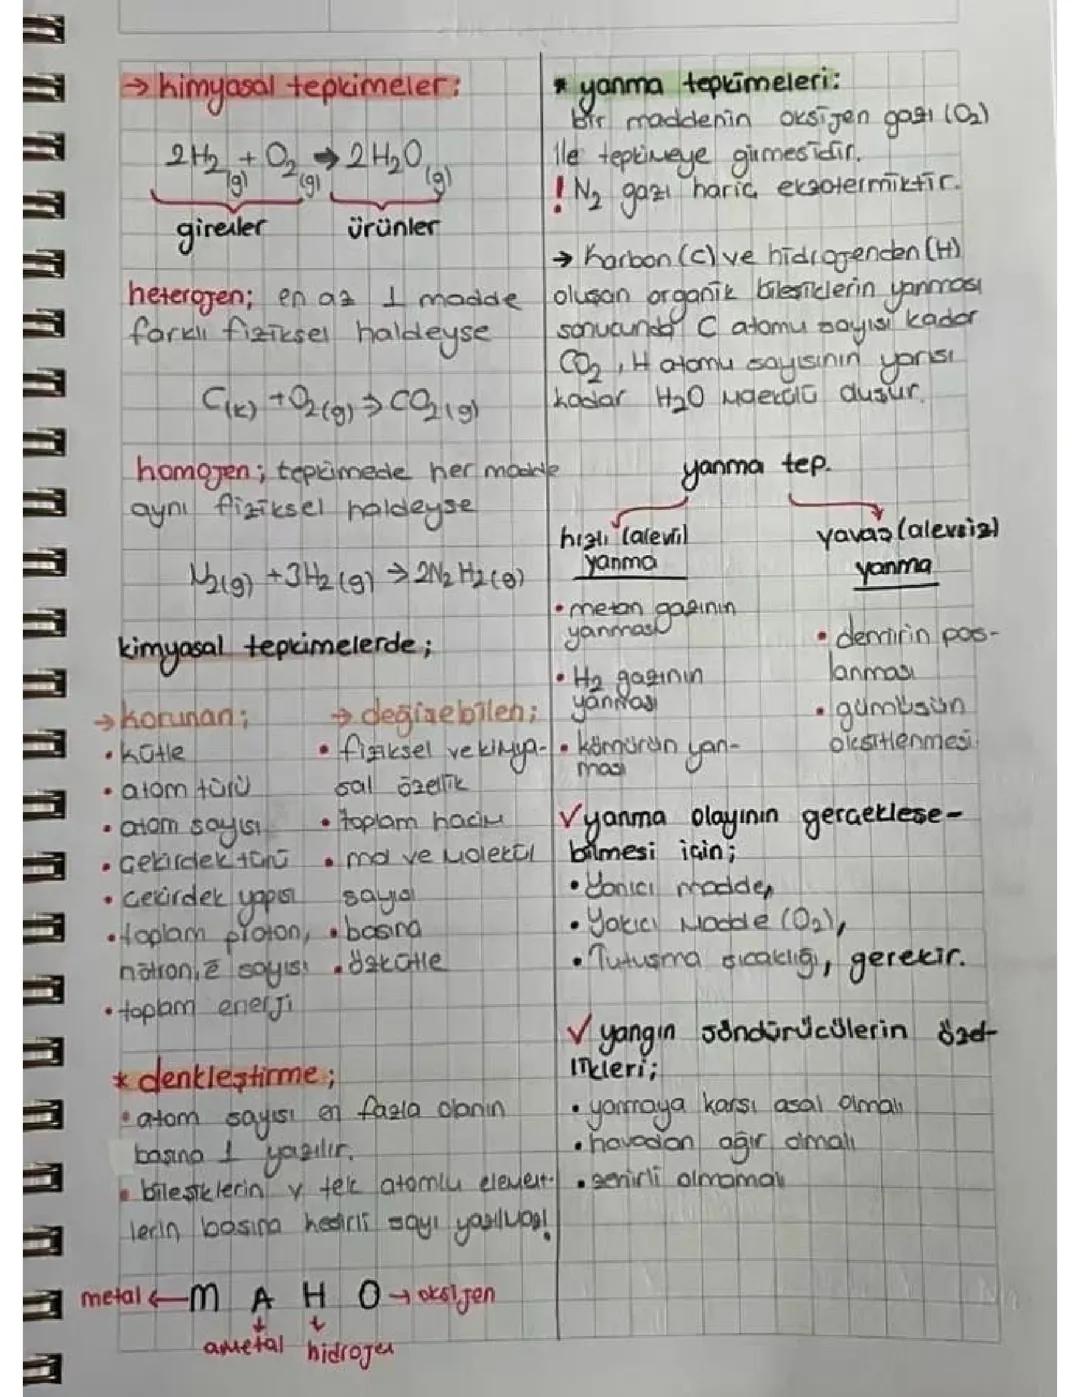 → kimyasal tepkimeler:
2H₂(g) + O₂(g) → 2H₂O(g)
girenler ürünler
heterojen; en az 1 madde
farklı fiziksel haldeyse
C(k) + O₂(g) → CO₂(g)
homojen; tepkimede her madde
aynı fiziksel haldeyse
N₂(g) + 3H₂(g) → 2N₂H₂(g)
kimyasal tepkimelerde;
→ korunan;
• kütle
• atom türü
• atom sayısı
• çekirdek türü
• çekirdek yapısı
• toplam proton,
nötron, ē sayısı
• toplam enerji
→ değişebilen;
• fiziksel ve kimya-
sal özellik
• toplam hacim
• mol ve molekül
sayısı
• basınç
• özkütle
* denkleştirme;
• atom sayısı en fazla olanın
başına 1 yazılır.
• bileşiklerin v tek atomlu element-
lerin başına kesirli sayı
metal ← M A H O → oksijen
ametal hidrojen
* yanma tepkimeleri:
bir maddenin oksijen gazı (O₂)
ile tepkimeye girmesidir.
! N₂ gazı hariç ekzotermiktir.
→ Karbon (C) ve hidrojenden (H)
oluşan organik bileşiklerin yanması
sonucunda C atomu sayısı kadar
CO₂, H atomu sayısının yarısı
kadar H₂O molekülü oluşur.
yanma tep.
hızlı (alevli)
yanma
• metan gazının
yanması
• H₂ gazının
yanması
• kömürün yan-
ması
yavaş (alevsiz)
yanma
• demirin pas-
lanması
• gümüşün
oksitlenmesi
✓ yanma olayının gerçekleşe-
bilmesi için;
• Yanıcı madde,
• Yakıcı madde (O₂),
• Tutuşma sıcaklığı, gerekir.
✓ yangın söndürücülerin özel-
likleri;
• yanmaya karşı asal olmalı
• havadan ağır olmalı
• zehirli olmamalı